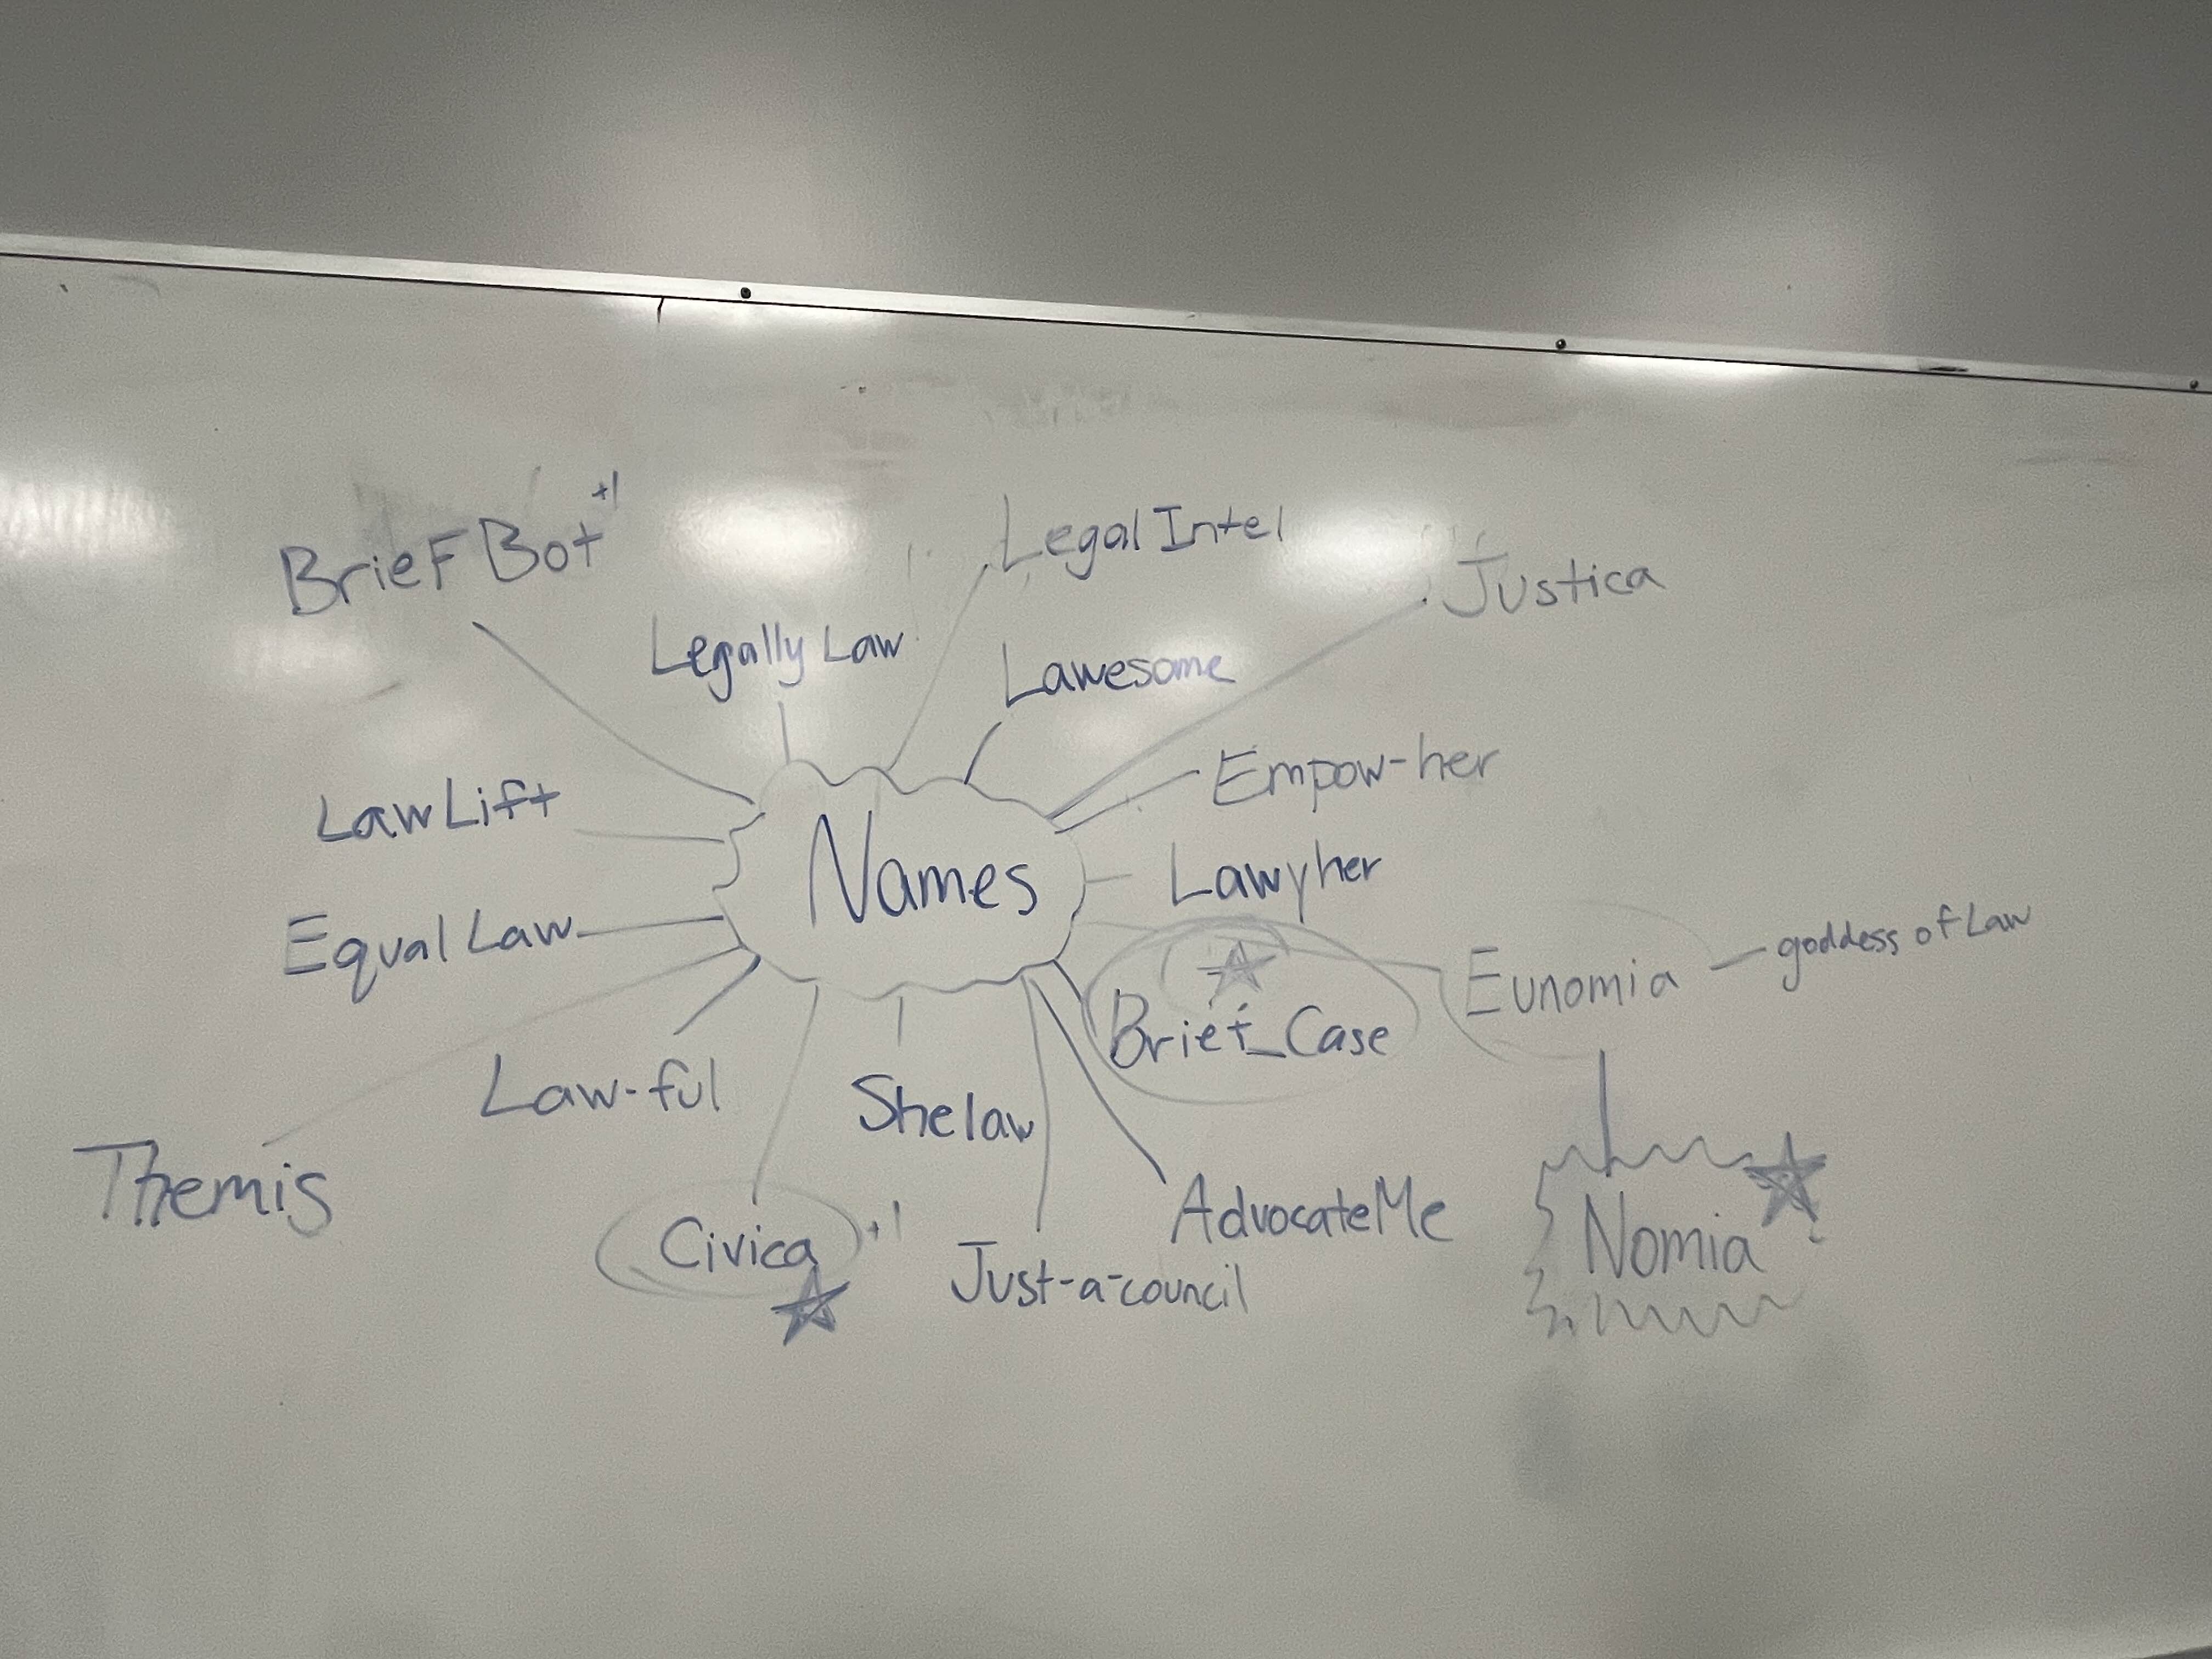 BrieF Bot +1
Legal Intel
Justica
Legally Law
Lawesome
Empow-her
LawLift
Names
Lawyher
Equal Law
Eunomia
goddess of Law
Brief_Case
Law-ful
Shelaw
Themis
Civica +1
Just-a-council
AdvocateMe
Nomia